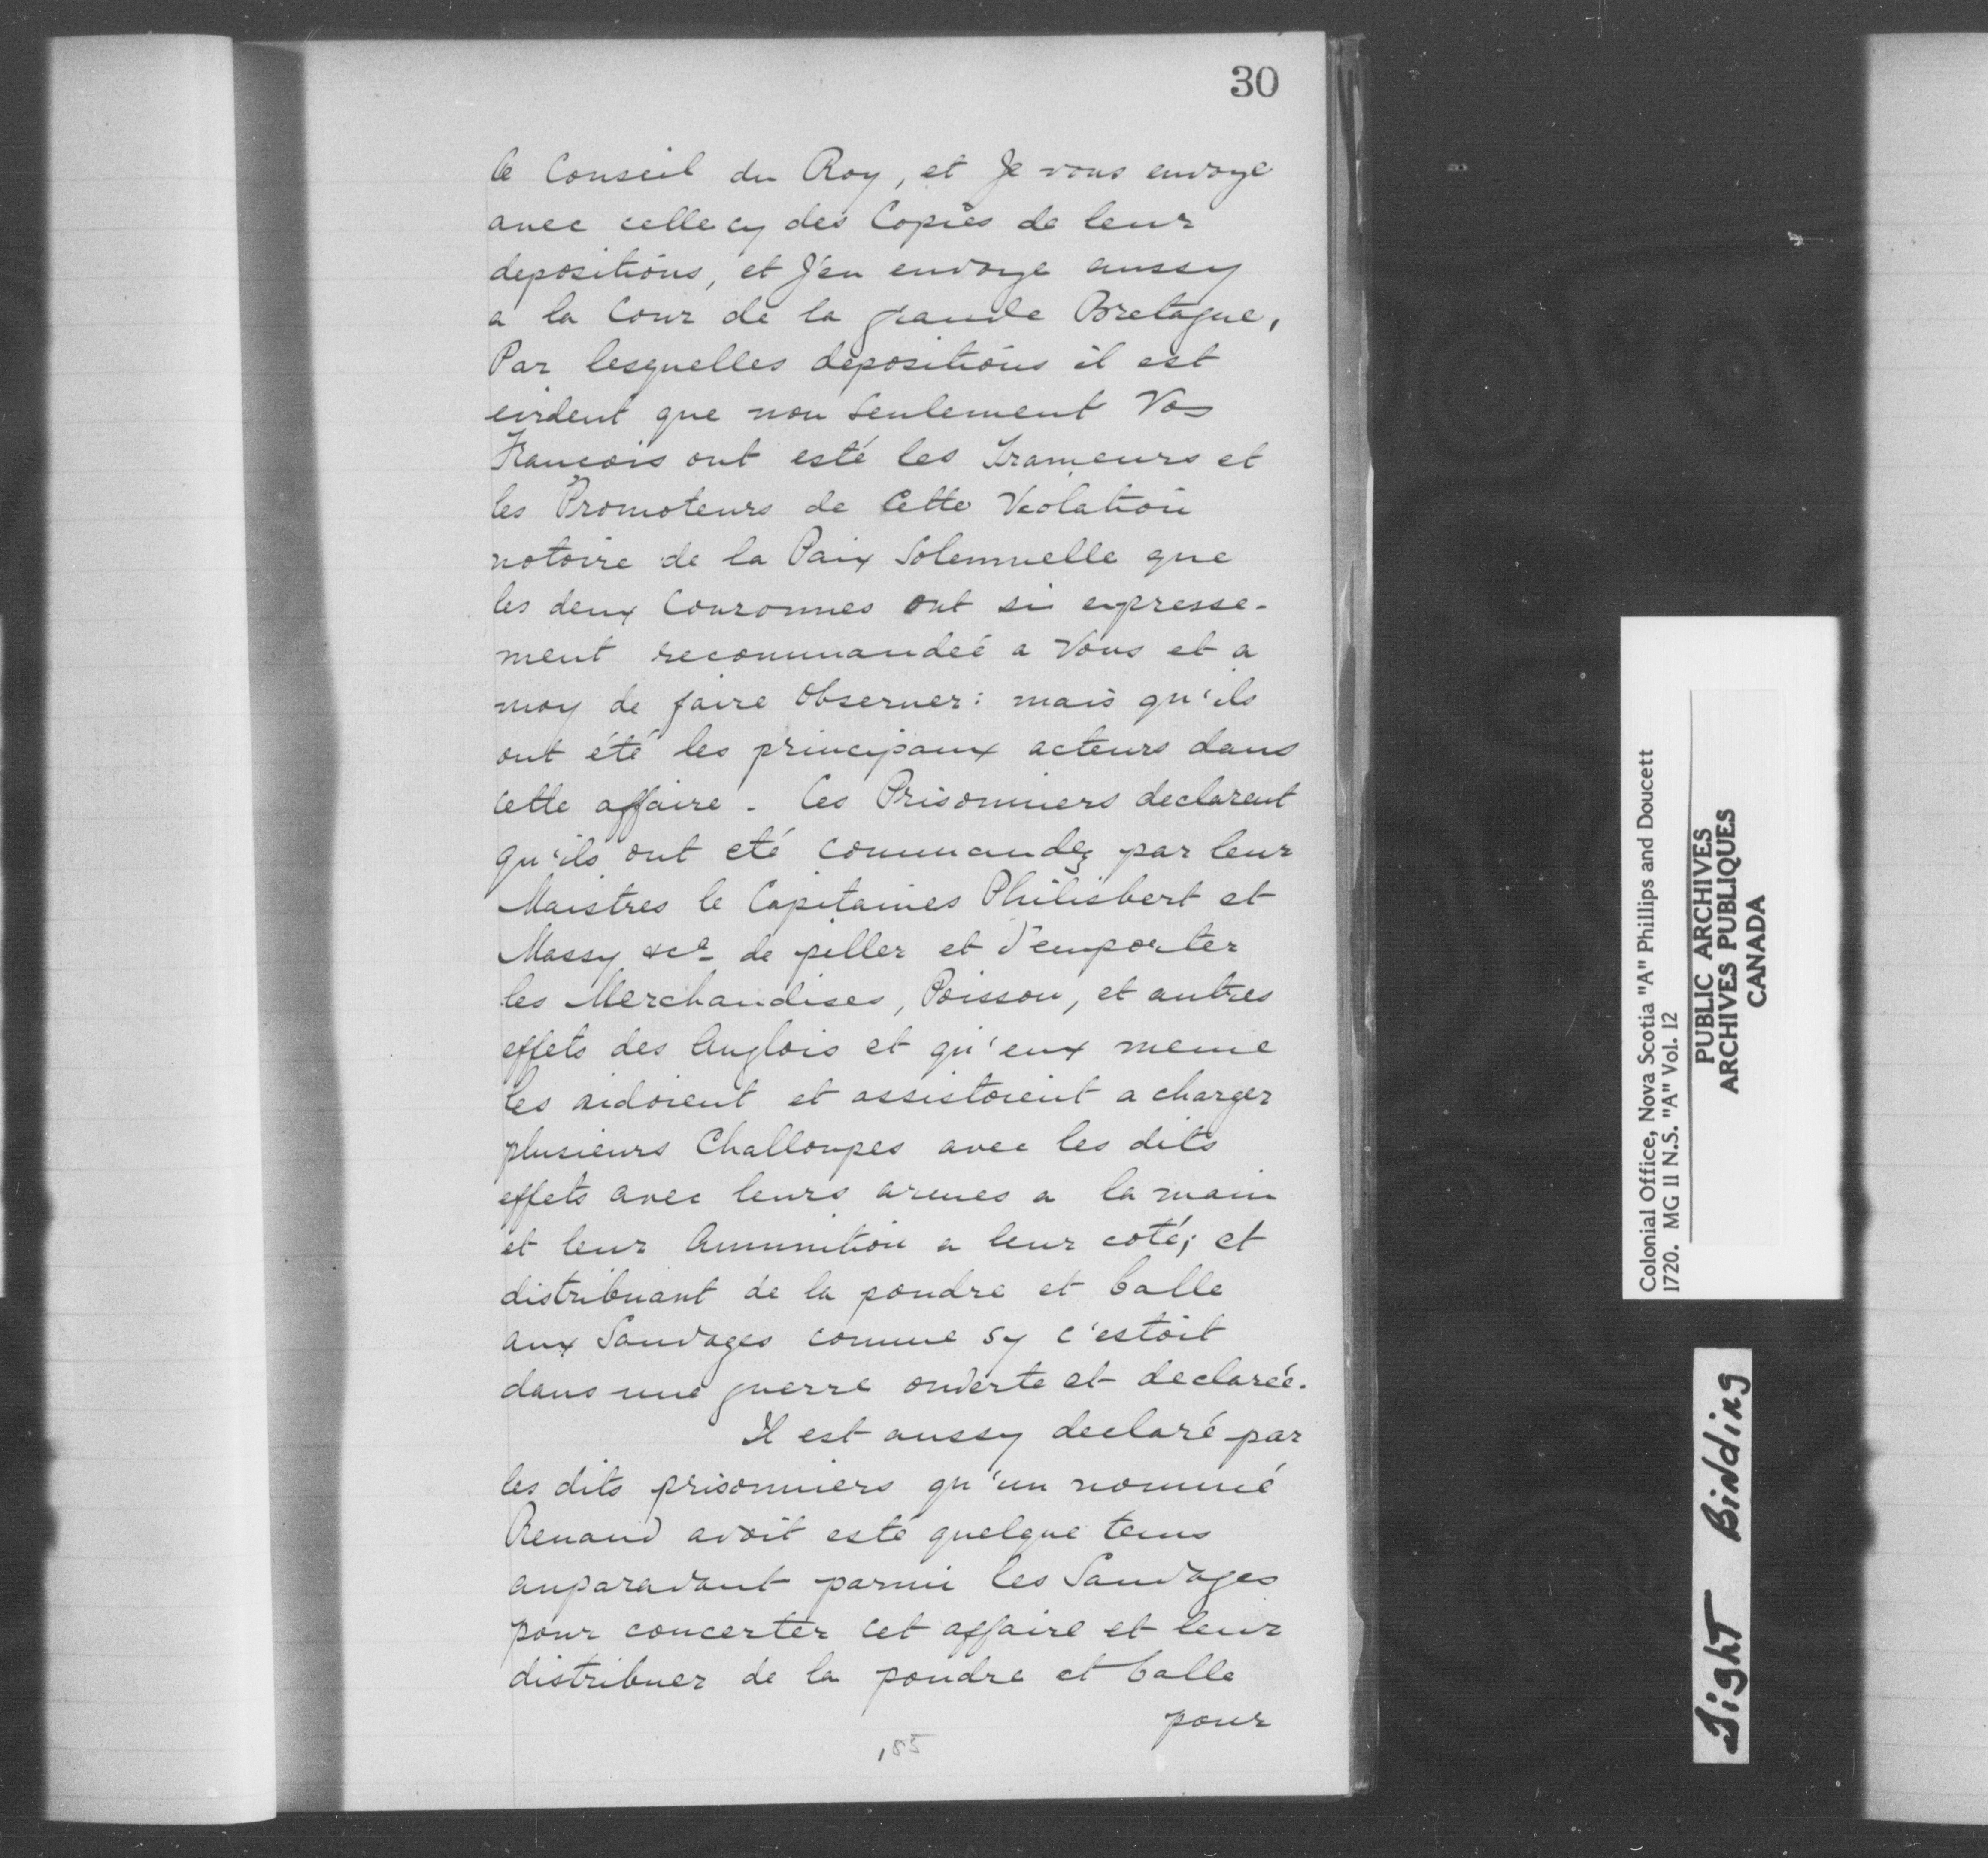 30
le Conseil du Roy, et Je vous envoye
avec celle cy des Copies de leur
depositions, et J'en envoye aussy
a la Cour de la grande Bretagne,
Par lesquelles depositions il est
evident que non seulement Vos
Francois ont esté les Trameurs et
les Promoteurs de Cette Violation
notoire de la Paix Solemnelle que
les deux Couronnes ont si expresse-
ment recommandeé a Vous et a
moy de faire observer: mais qu'ils
ont été les principaux acteurs dans
cette affaire. Ces Prisonniers declarent
qu'ils ont eté commandez par leur
Maistres le Capitaines Philisbert et
Massy &ca de piller et d'emporter
les Merchandises, Poisson, et autres
effets des Anglois et qu'eux meme
les aidoient et assistoient a charger
plusieurs Challoupes avec les dits
effets avec leurs armes a la main
et leur Ammunition a leur coté; et
distribuant de la poudre et balle
aux Sauvages comme sy c'estoit
dans une guerre ouverte et declareé.
Il est aussy declaré par
les dits prisonniers qu'un nommé
Renaud avoit esté quelque tems
auparavant parmi les Sauvages
pour concerter cet affaire et leur
distribuer de la poudre et balle
pour
185
Colonial Office, Nova Scotia "A" Phillips and Doucett
1720. MG 11 N.S. "A" Vol. 12
PUBLIC ARCHIVES
ARCHIVES PUBLIQUES
CANADA
Tight Binding